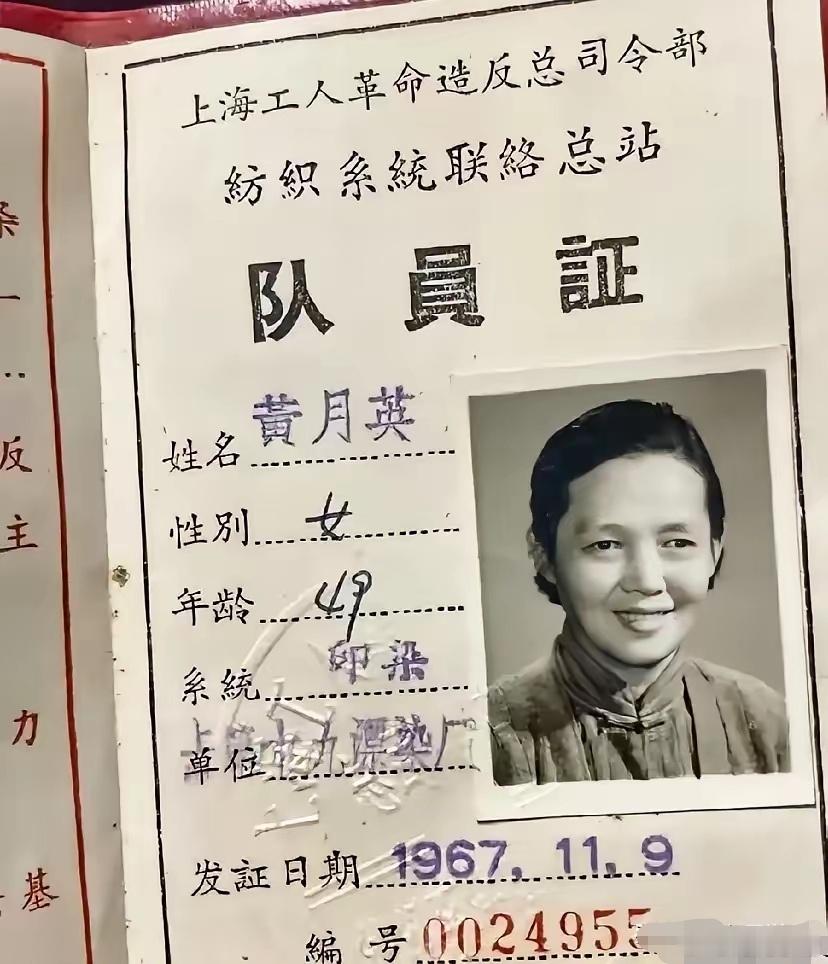 染
一
…
反
主
力
基
上海工人革命造反总司令部
紡織系統联絡总站
队員証
姓名 黃月英
性別 女
年龄 49
系統 印染
单位 上海十九漂染厂
发証日期 1967.11.9
編号 0024955